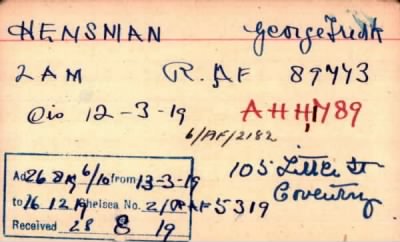 HENSMAN George Fredk
2 AM R.AF 89443
Dis 12-3-19 AHH789
6/AF/2182
Ad 26.8.19 6/10 from 13-3-19
to 16 12 19 Chelsea No. 2/OR AF 5319
Received 28 8 19
105 Little St
Coventry